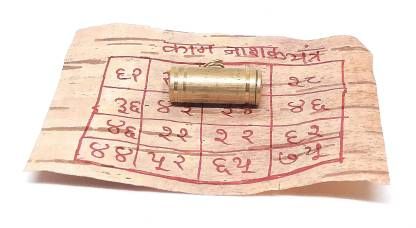 काम नाशक यंत्र
६१ २८
३६ ४२ ४६
४६ २१ २२ ६२
४४ ५२ ६५ ७५